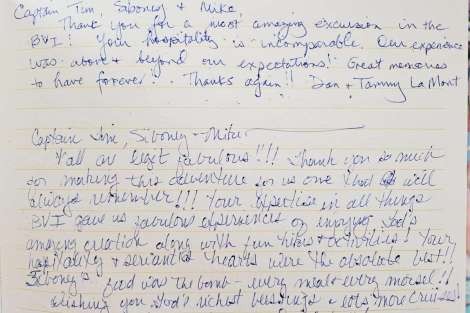 Captain Tim, Siboney & Mike
Thank you for a most amazing excursion in the
BVI! Your hospitality is incomparable. Our experience
was above & beyond our expectations! Great memories
to have forever! Thanks again!! Dan & Tammy La Mont
Captain Tim, Siboney & Mike
Y'all are legit fabulous!!! Thank you so much
for making this adventure for us one that we'll
always remember!!! Your expertise in all things
BVI gave us fabulous experiences of enjoying God's
amazing creation along with fun & activities! Your
hospitality & servants hearts were the absolute best!!
Siboney's food was the bomb - every meal - every morsel!!
Wishing you God's richest blessings & lots more cruises!